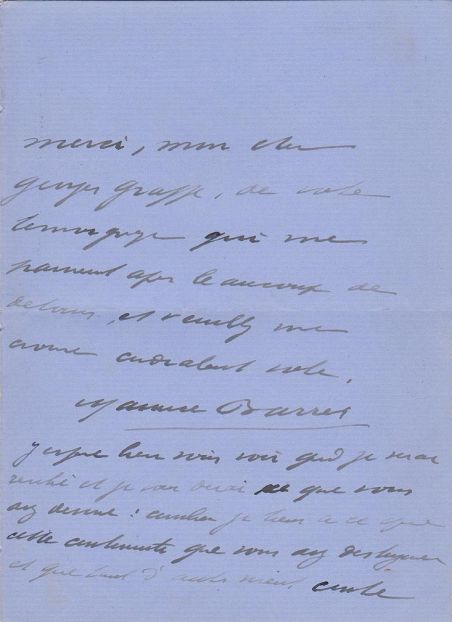 merci, mon cher
Georges Grappe, de votre
temoignage qui me
parvient après beaucoup de
detours, et veuillez me
croire cordialement votre.
Maurice Barrès
J'espère bien vous voir quand je serai
rentré et je vous dirai que vous
avez deviné : combien je tiens à ce que
cette continuité que vous avez distinguée
et que tant d'autres